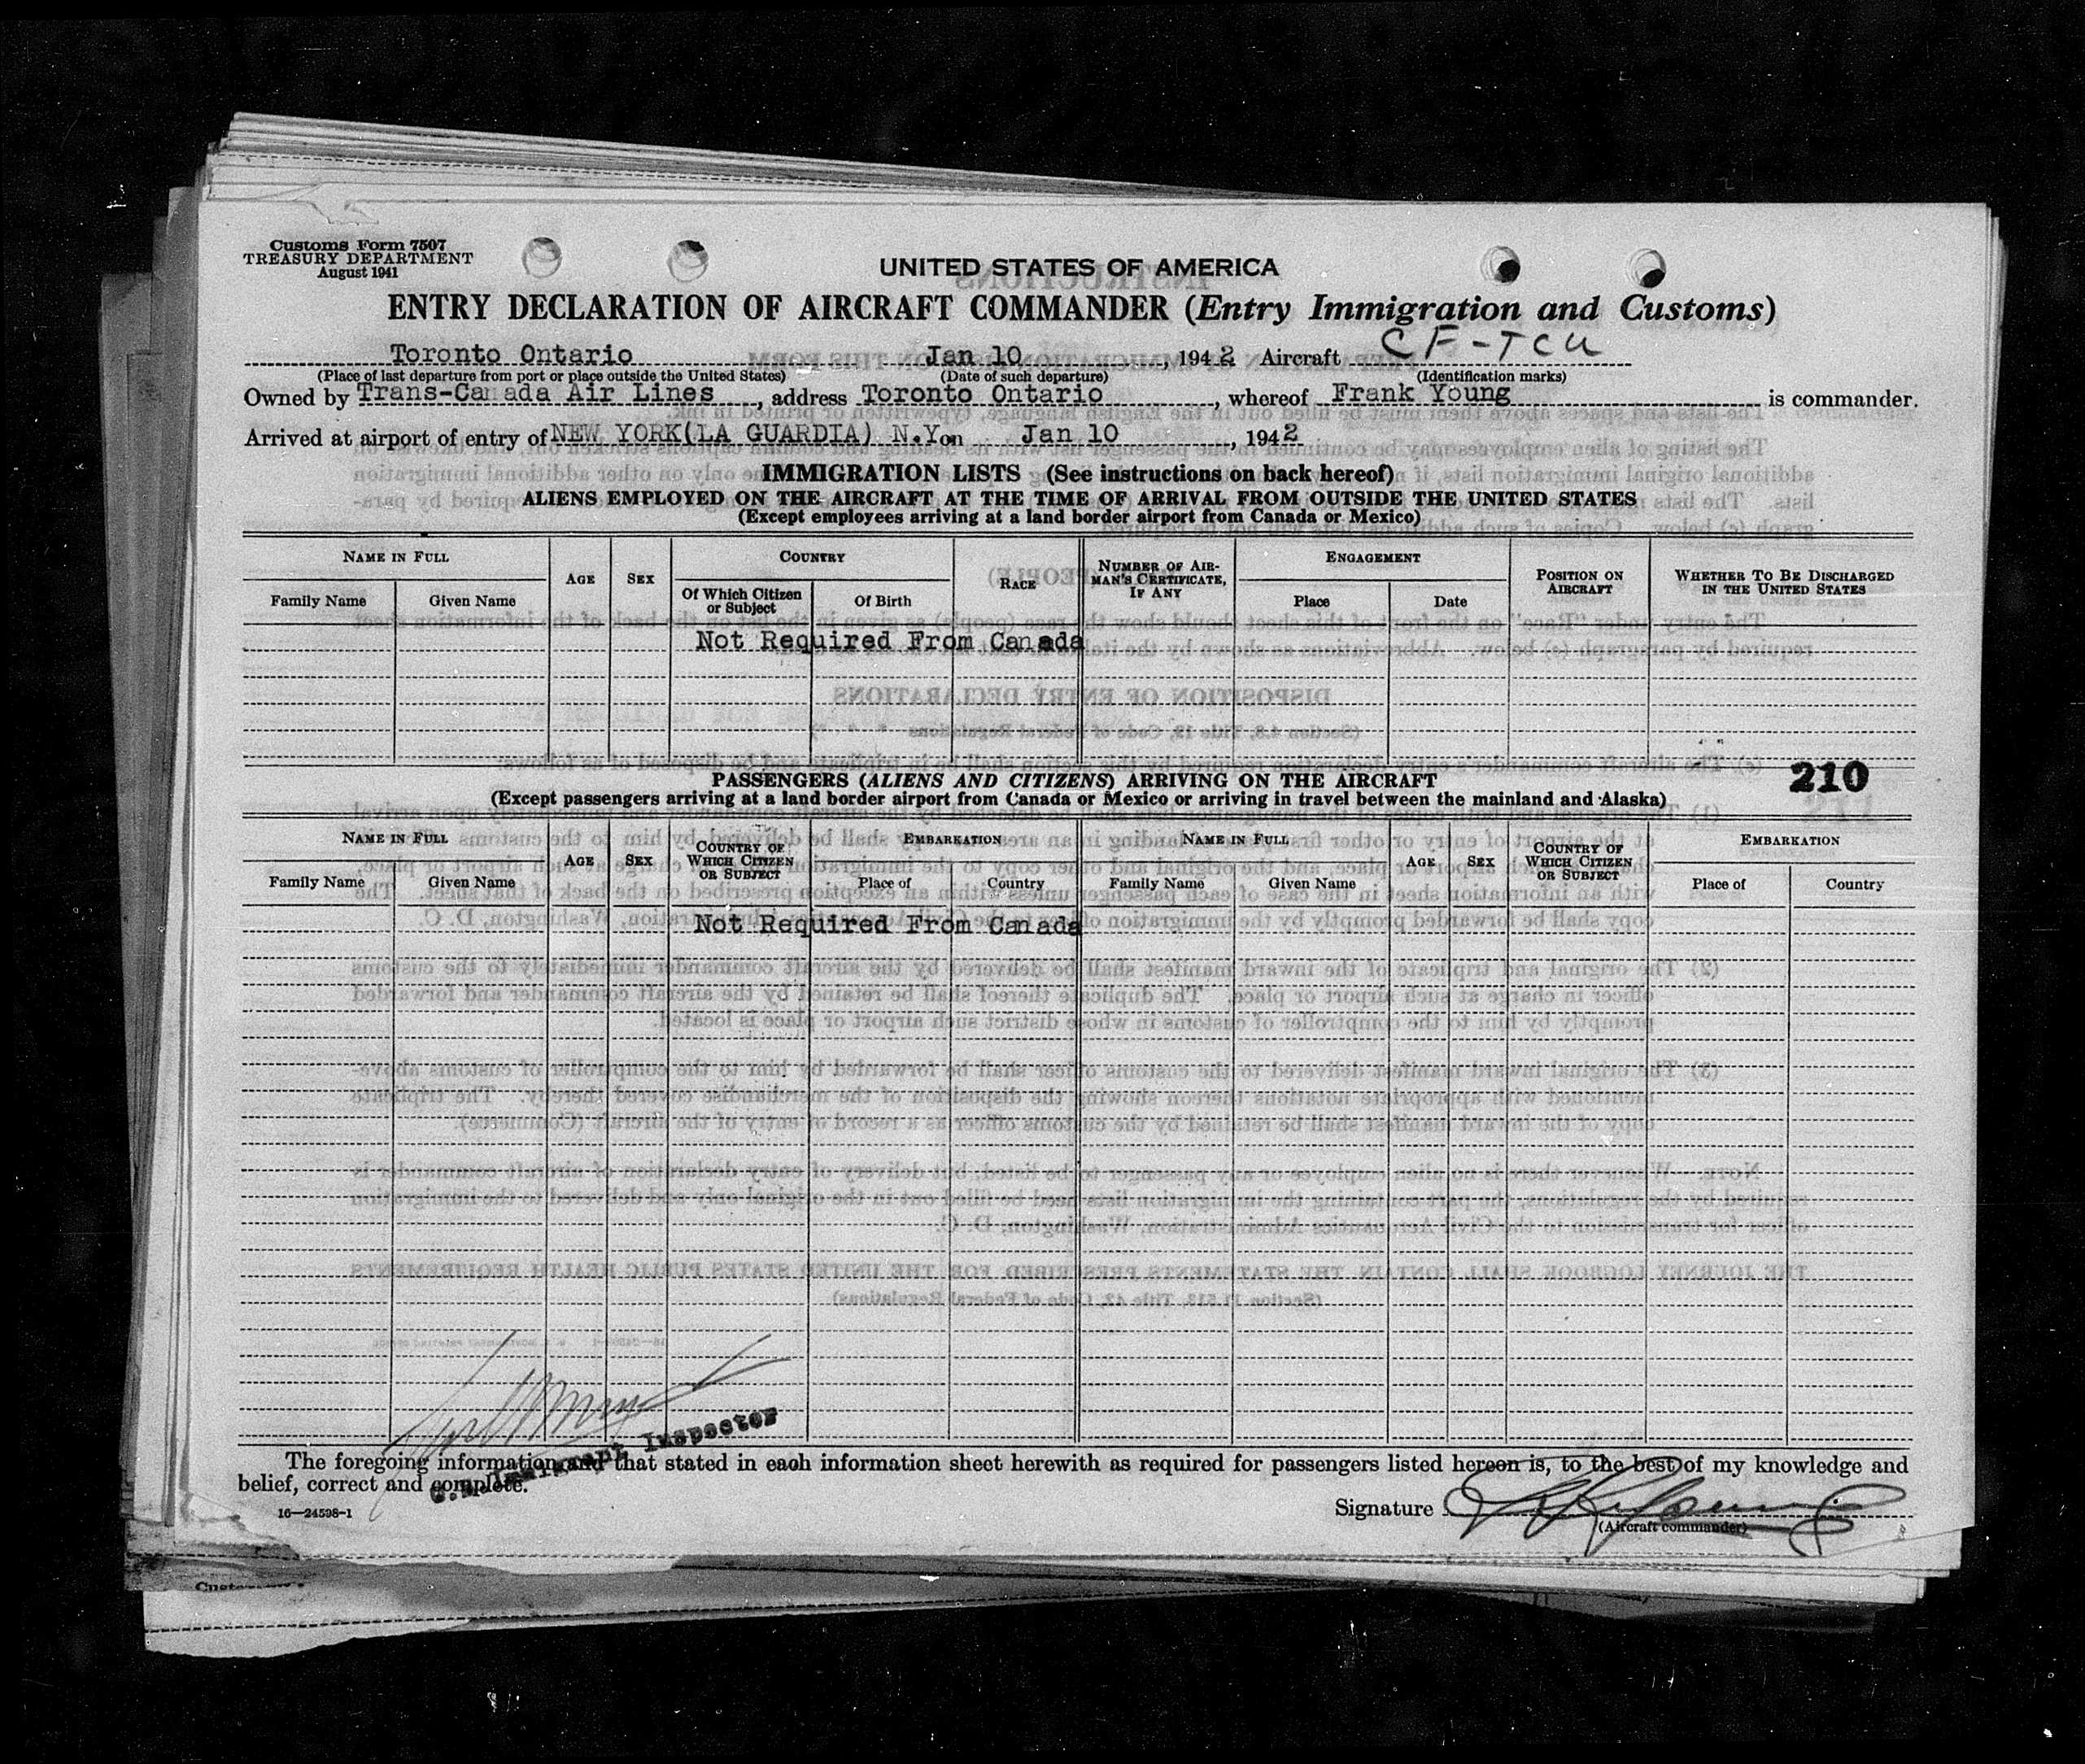 Customs Form 7507
TREASURY DEPARTMENT
August 1941
UNITED STATES OF AMERICA
ENTRY DECLARATION OF AIRCRAFT COMMANDER (Entry Immigration and Customs)
Toronto Ontario Jan 10, 1942 Aircraft CF-TCU
(Place of last departure from port or place outside the United States) (Date of such departure) (Identification marks)
Owned by Trans-Canada Air Lines, address Toronto Ontario, whereof Frank Young is commander.
Arrived at airport of entry of NEW YORK(LA GUARDIA) N.Y. on Jan 10, 1942
IMMIGRATION LISTS (See instructions on back hereof)
ALIENS EMPLOYED ON THE AIRCRAFT AT THE TIME OF ARRIVAL FROM OUTSIDE THE UNITED STATES
(Except employees arriving at a land border airport from Canada or Mexico)
NAME IN FULL AGE SEX COUNTRY RACE NUMBER OF AIRMAN'S CERTIFICATE, IF ANY ENGAGEMENT POSITION ON AIRCRAFT WHETHER TO BE DISCHARGED IN THE UNITED STATES
Family Name Given Name Of Which Citizen or Subject Of Birth Place Date
Not Required From Canada
PASSENGERS (ALIENS AND CITIZENS) ARRIVING ON THE AIRCRAFT
210
(Except passengers arriving at a land border airport from Canada or Mexico or arriving in travel between the mainland and Alaska)
NAME IN FULL AGE SEX COUNTRY OF WHICH CITIZEN OR SUBJECT EMBARKATION NAME IN FULL AGE SEX COUNTRY OF WHICH CITIZEN OR SUBJECT EMBARKATION
Family Name Given Name Place of Country Family Name Given Name Place of Country
Not Required From Canada
U.S. Immigrant Inspector
The foregoing information and that stated in each information sheet herewith as required for passengers listed hereon is, to the best of my knowledge and
belief, correct and complete.
16—24598-1
Signature
(Aircraft commander)